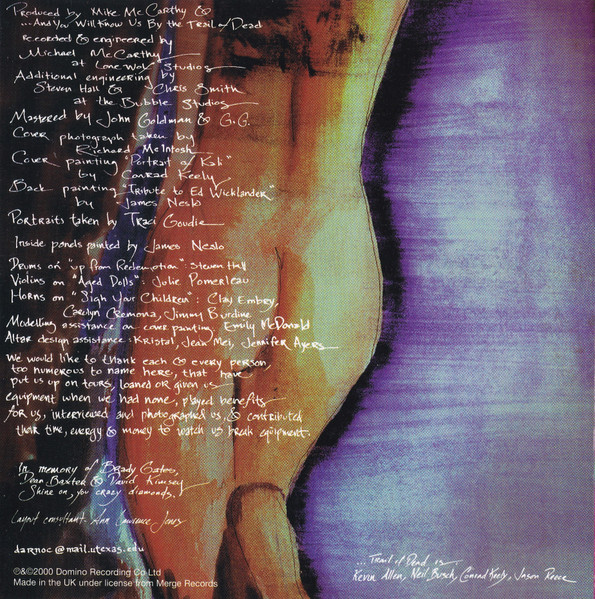 Produced by Mike McCarthy &
...And You Will Know Us By the Trail of Dead
recorded & engineered by
Michael McCarthy
at Lone Wolf Studios
Additional engineering by
Steven Hall & Chris Smith
at the Bubble Studios
Mastered by John Goldman & G.G.
Cover photograph taken by
Richard McIntosh
Cover painting "Portrait of Kali"
by Conrad Keely
Back painting "Tribute to Ed Wicklander"
by James Neslo
Portraits taken by Traci Goudie
Inside panels painted by James Neslo
Drums on "Up from Redemption": Steven Hall
Violins on "Aged Dolls": Julie Pomerleau
Horns on "Sigh Your Children": Clay Embry,
Carolyn Cremona, Jimmy Burdine
Modelling assistance on cover painting, Emily McDonald
Altar design assistance: Kristal, Jean Mei, Jennifer Ayers
We would like to thank each & every person,
too numerous to name here, that have
put us up on tours, loaned or given us
equipment when we had none, played benefits
for us, interviewed and photographed us, & contributed
their time, energy & money to watch us break equipment.
In memory of Brady Gates,
Dean Baxter & David Kimsey
Shine on, you crazy diamonds.
Layout consultant- Ann Lawrence Jones
darnoc@mail.utexas.edu
℗&©2000 Domino Recording Co Ltd
Made in the UK under license from Merge Records
...Trail of Dead is
Kevin Allen, Neil Busch, Conrad Keely, Jason Reece